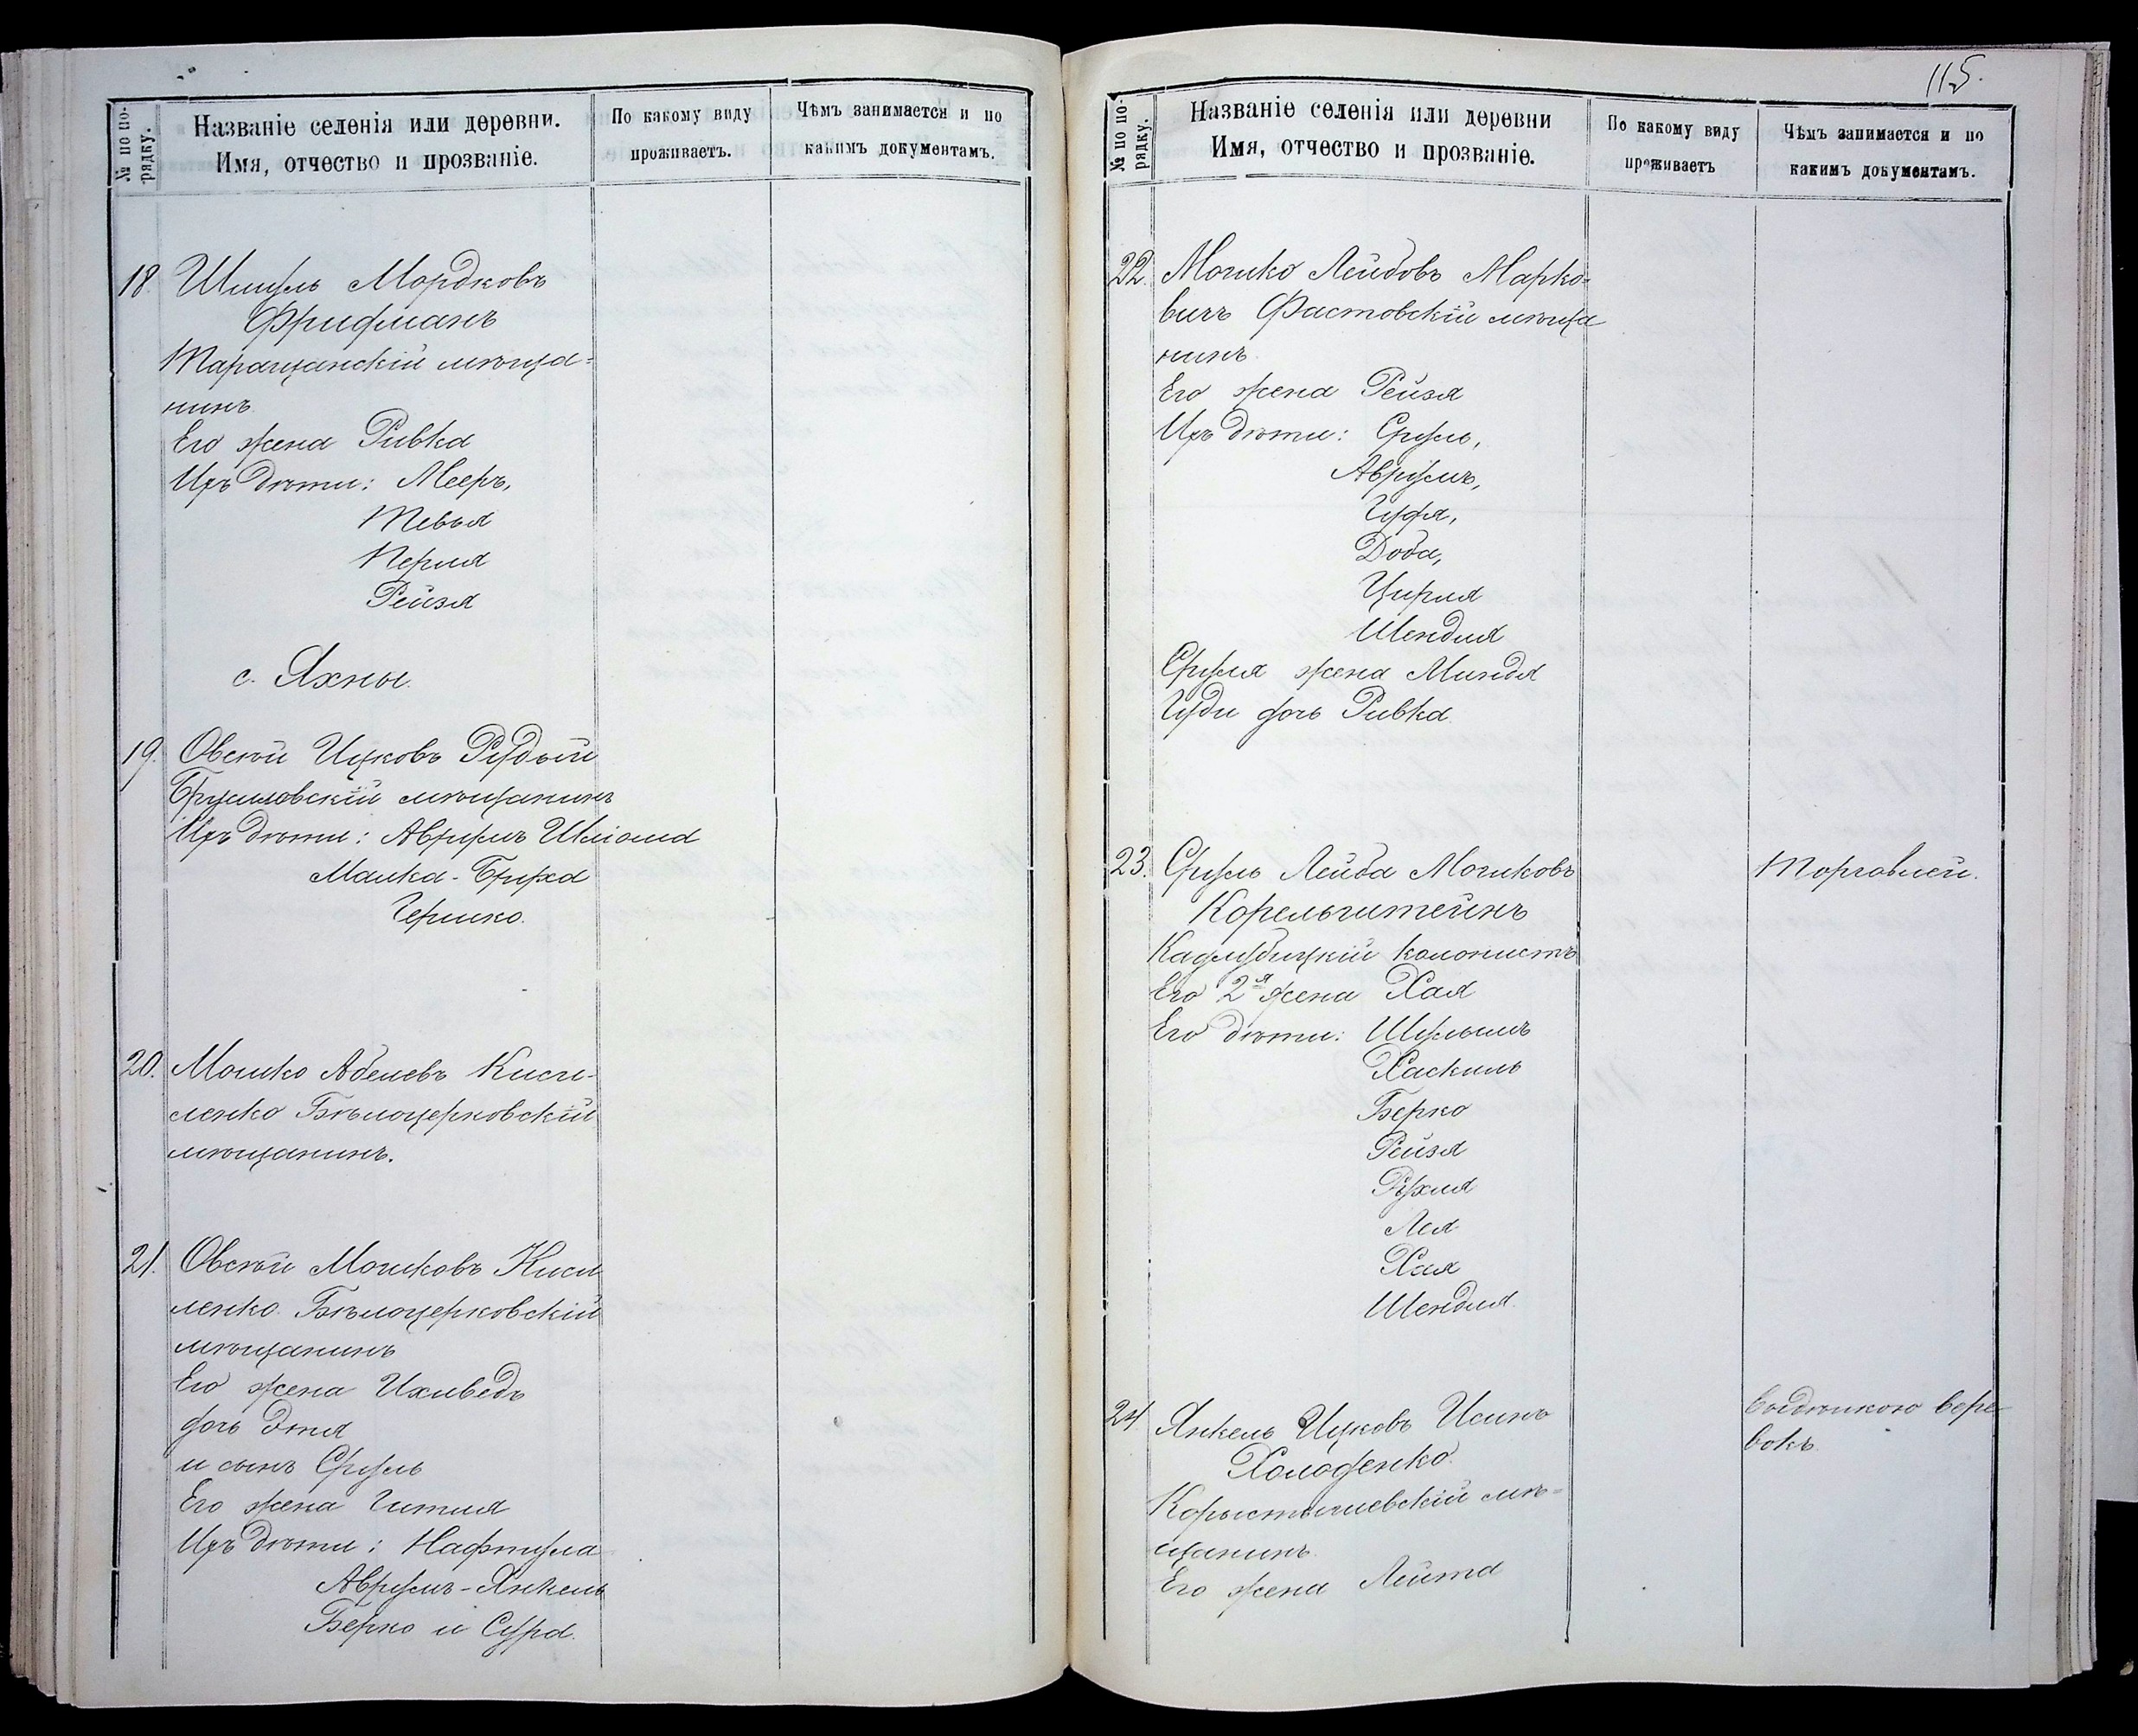 № по по-
рядку.
Названіе селенія или деревни.
Имя, отчество и прозваніе.
По какому виду
проживаетъ.
Чѣмъ занимается и по
какимъ документамъ.
18 Шмуль Мордковъ
Фрифманъ
Таращанскій мѣща-
нинъ
Его жена Ривка
Ихъ дѣти: Мееръ,
Тевья
Перля
Рейзя
с. Яхны.
19. Овсѣй Ицковъ Рудый
Брусиловскій мѣщанинъ
Ихъ дѣти: Аврумъ Шліома
Малка-Бруха
Гершко.
20. Мошко Абелевъ Киси-
ленко Бѣлоцерковскій
мѣщанинъ.
21. Овсѣй Мошковъ Киси
ленко Бѣлоцерковскій
мѣщанинъ
Его жена Ихиведъ
дочь Этя
и сынъ Сруль
Его жена Гитля
Ихъ дѣти: Нафтула
Аврумъ-Янкель
Берко и Сура.
115.
№ по по-
рядку.
Названіе селенія или деревни
Имя, отчество и прозваніе.
По какому виду
проживаетъ
Чѣмъ занимается и по
какимъ документамъ.
22. Мошко Лейбовъ Марко-
вичъ Фастовскій мѣща
нинъ
Его жена Рейзя
Ихъ дѣти: Сруль,
Аврумъ,
Гудя,
Доба,
Цирля
Шендля
Сруля жена Миндя
Гуди дочь Ривка
23. Сруль Лейба Мошковъ
Корельштейнъ
Кадлубицкій колонистъ
Его 2я жена Хая
Его дѣти: Шулымъ
Хаскиль
Берко
Рейзя
Рухля
Лея
Хая
Шендля.
Торговлей.
24. Янкель Ицковъ Исинъ
Холоденко.
Коростышевскій мѣ-
щанинъ.
Его жена Лейта
Выдѣлкою вере-
вокъ